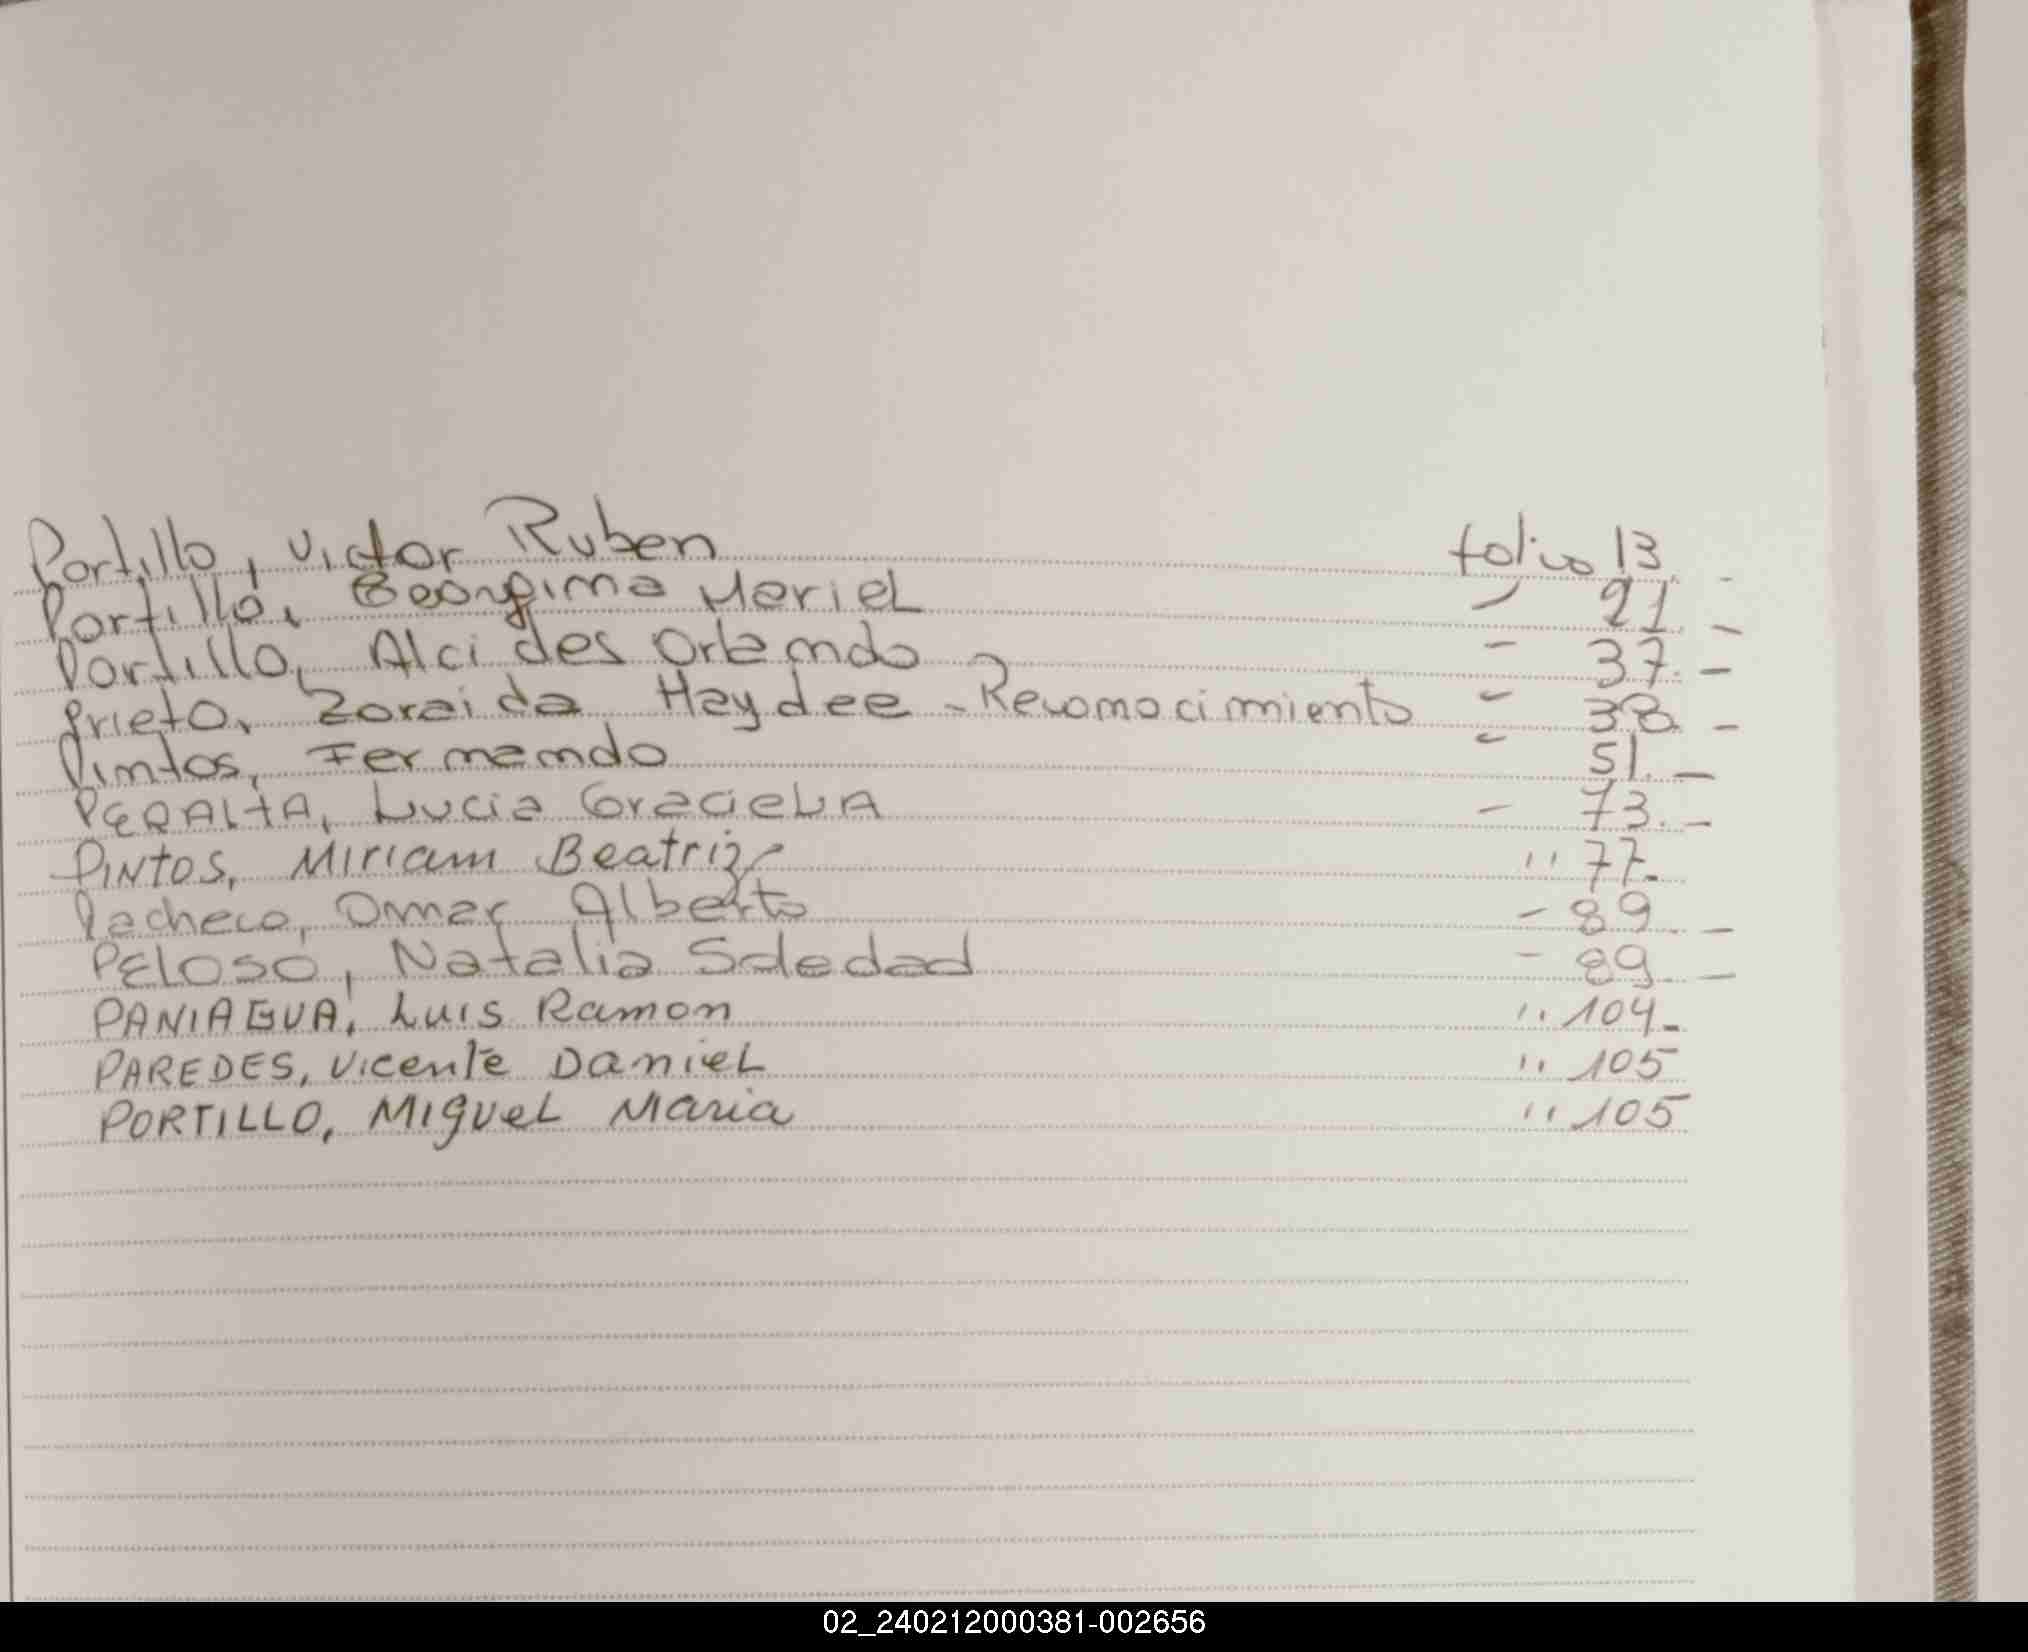 Portillo, Victor Ruben folio 13. -
Portillo, Mariel " 21. -
Portillo, Alcides Orlando - 37. -
Prieto, Zoraida Haydee - Reconocimiento " 38. -
Pintos, Fernando " 51. -
PERALTA, Lucia GracieLA - 73. -
PINTOS, Miriam Beatriz " 77.-
Pacheco, Omar Alberto - 89. -
PELOSO, Natalia Soledad - 89. -
PANIAGUA, Luis Ramon " 104.-
PAREDES, Vicente DanieL " 105
PORTILLO, MigueL Maria " 105
02_240212000381-002656